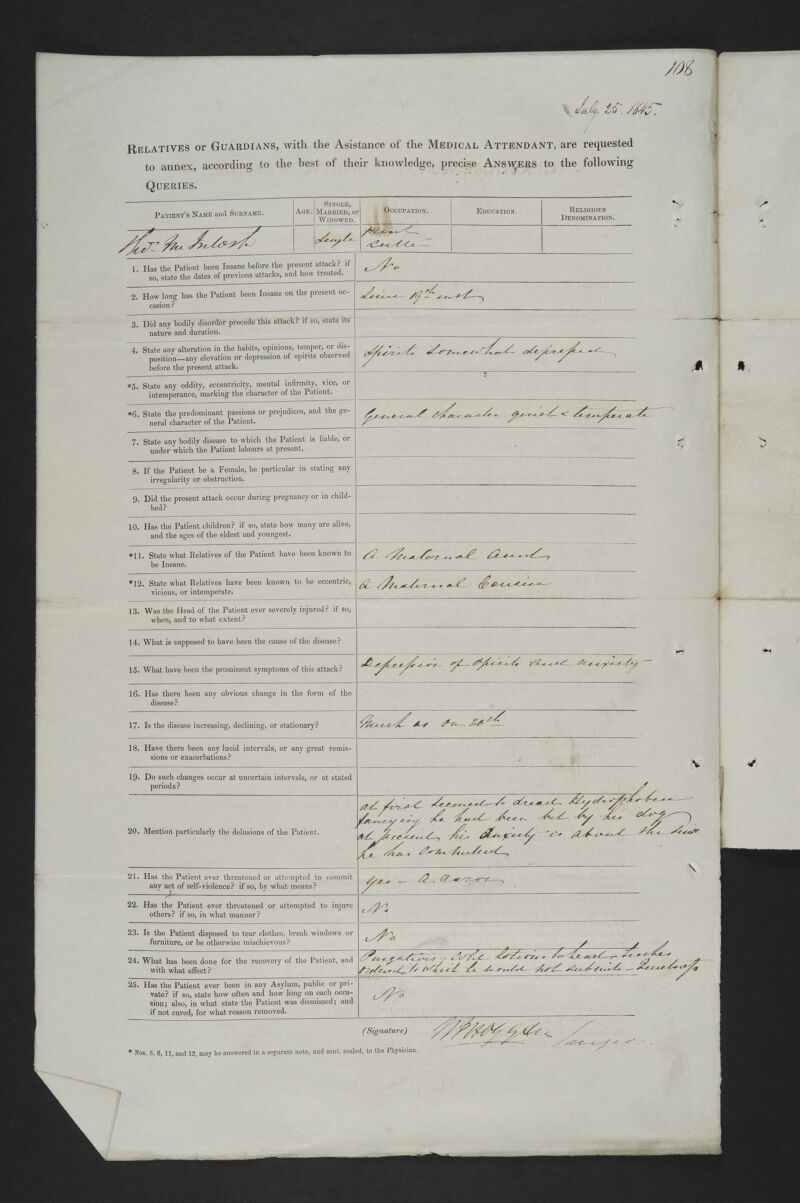 108
July 25. 1845.
RELATIVES or GUARDIANS, with the Asistance of the MEDICAL ATTENDANT, are requested
to annex, according to the best of their knowledge, precise ANSWERS to the following
QUERIES.
PATIENT'S NAME and SURNAME.
AGE.
SINGLE,
MARRIED, or
WIDOWED.
OCCUPATION.
EDUCATION.
RELIGIOUS
DENOMINATION.
Thos. McIntosh
Single
Print
Cutter
1. Has the Patient been Insane before the present attack? if
so, state the dates of previous attacks, and how treated.
No
2. How long has the Patient been Insane on the present oc-
casion?
Since 19th inst
3. Did any bodily disorder precede this attack? if so, state its
nature and duration.
4. State any alteration in the habits, opinions, temper, or dis-
position—any elevation or depression of spirits observed
before the present attack.
Spirits somewhat depressed
*5. State any oddity, eccentricity, mental infirmity, vice, or
intemperance, marking the character of the Patient.
*6. State the predominant passions or prejudices, and the ge-
neral character of the Patient.
General character quiet & temperate
7. State any bodily disease to which the Patient is liable, or
under which the Patient labours at present.
8. If the Patient be a Female, be particular in stating any
irregularity or obstruction.
9. Did the present attack occur during pregnancy or in child-
bed?
10. Has the Patient children? if so, state how many are alive,
and the ages of the eldest and youngest.
*11. State what Relatives of the Patient have been known to
be Insane.
A Maternal Aunt
*12. State what Relatives have been known to be eccentric,
vicious, or intemperate.
A Maternal Cousin
13. Was the Head of the Patient ever severely injured? if so,
when, and to what extent?
14. What is supposed to have been the cause of the disease?
15. What have been the prominent symptoms of this attack?
Depression of Spirits and anxiety
16. Has there been any obvious change in the form of the
disease?
17. Is the disease increasing, declining, or stationary?
Much as on 20th
18. Have there been any lucid intervals, or any great remis-
sions or exacerbations?
19. Do such changes occur at uncertain intervals, or at stated
periods?
20. Mention particularly the delusions of the Patient.
at first seemed to dread Hydrophobia
fancying he had been bit by his dog
at present his anxiety is about the sins
he has committed
21. Has the Patient ever threatened or attempted to commit
any act of self-violence? if so, by what means?
Yes – A razor
22. Has the Patient ever threatened or attempted to injure
others? if so, in what manner?
No
23. Is the Patient disposed to tear clothes, break windows or
furniture, or be otherwise mischievous?
No
24. What has been done for the recovery of the Patient, and
with what effect?
Purgatives – Cold lotions to head – Leeches
ordered to which he would not submit –
25. Has the Patient ever been in any Asylum, public or pri-
vate? if so, state how often and how long on each occa-
sion; also, in what state the Patient was dismissed; and
if not cured, for what reason removed.
No
(Signature)
Surgeon
* Nos. 5, 6, 11, and 12, may be answered in a separate note, and sent, sealed, to the Physician.